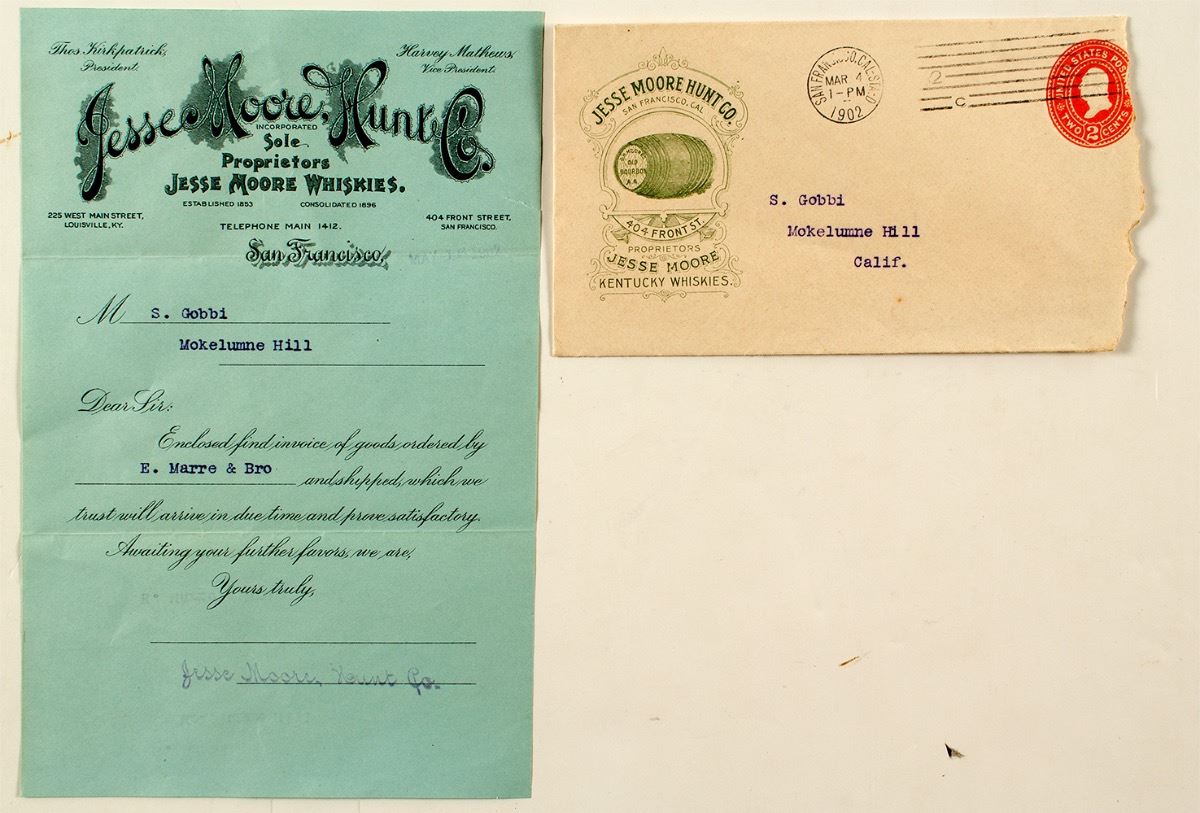 Thos Kirkpatrick,
President.
Harvey Mathews,
Vice President.
Jesse Moore, Hunt Co.
INCORPORATED
Sole
Proprietors
JESSE MOORE WHISKIES.
ESTABLISHED 1853 CONSOLIDATED 1896
225 WEST MAIN STREET,
LOUISVILLE, KY.
TELEPHONE MAIN 1412.
404 FRONT STREET,
SAN FRANCISCO.
San Francisco,
M S. Gobbi
Mokelumne Hill
Dear Sir:
Enclosed find invoice of goods ordered by
E. Marre & Bro and shipped, which we
trust will arrive in due time and prove satisfactory.
Awaiting your further favors, we are,
Yours truly,
Jesse Moore, Hunt Co.
JESSE MOORE HUNT CO.
SAN FRANCISCO, CAL.
OLD
BOURBON
A.A.
404 FRONT ST.
PROPRIETORS
JESSE MOORE
KENTUCKY WHISKIES.
SAN FRANCISCO, CAL.
MAR 4
1-PM
1902
2
C
UNITED STATES POSTAGE
TWO 2 CENTS
S. Gobbi
Mokelumne Hill
Calif.